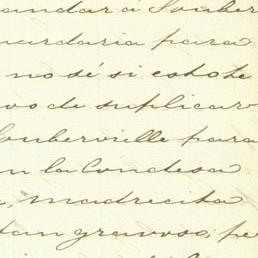 andar á Souber
uardaria para
no sé si esto te
vo de suplicar
Souberville para
n la Condesa
madrecita
tan gravoso; pe